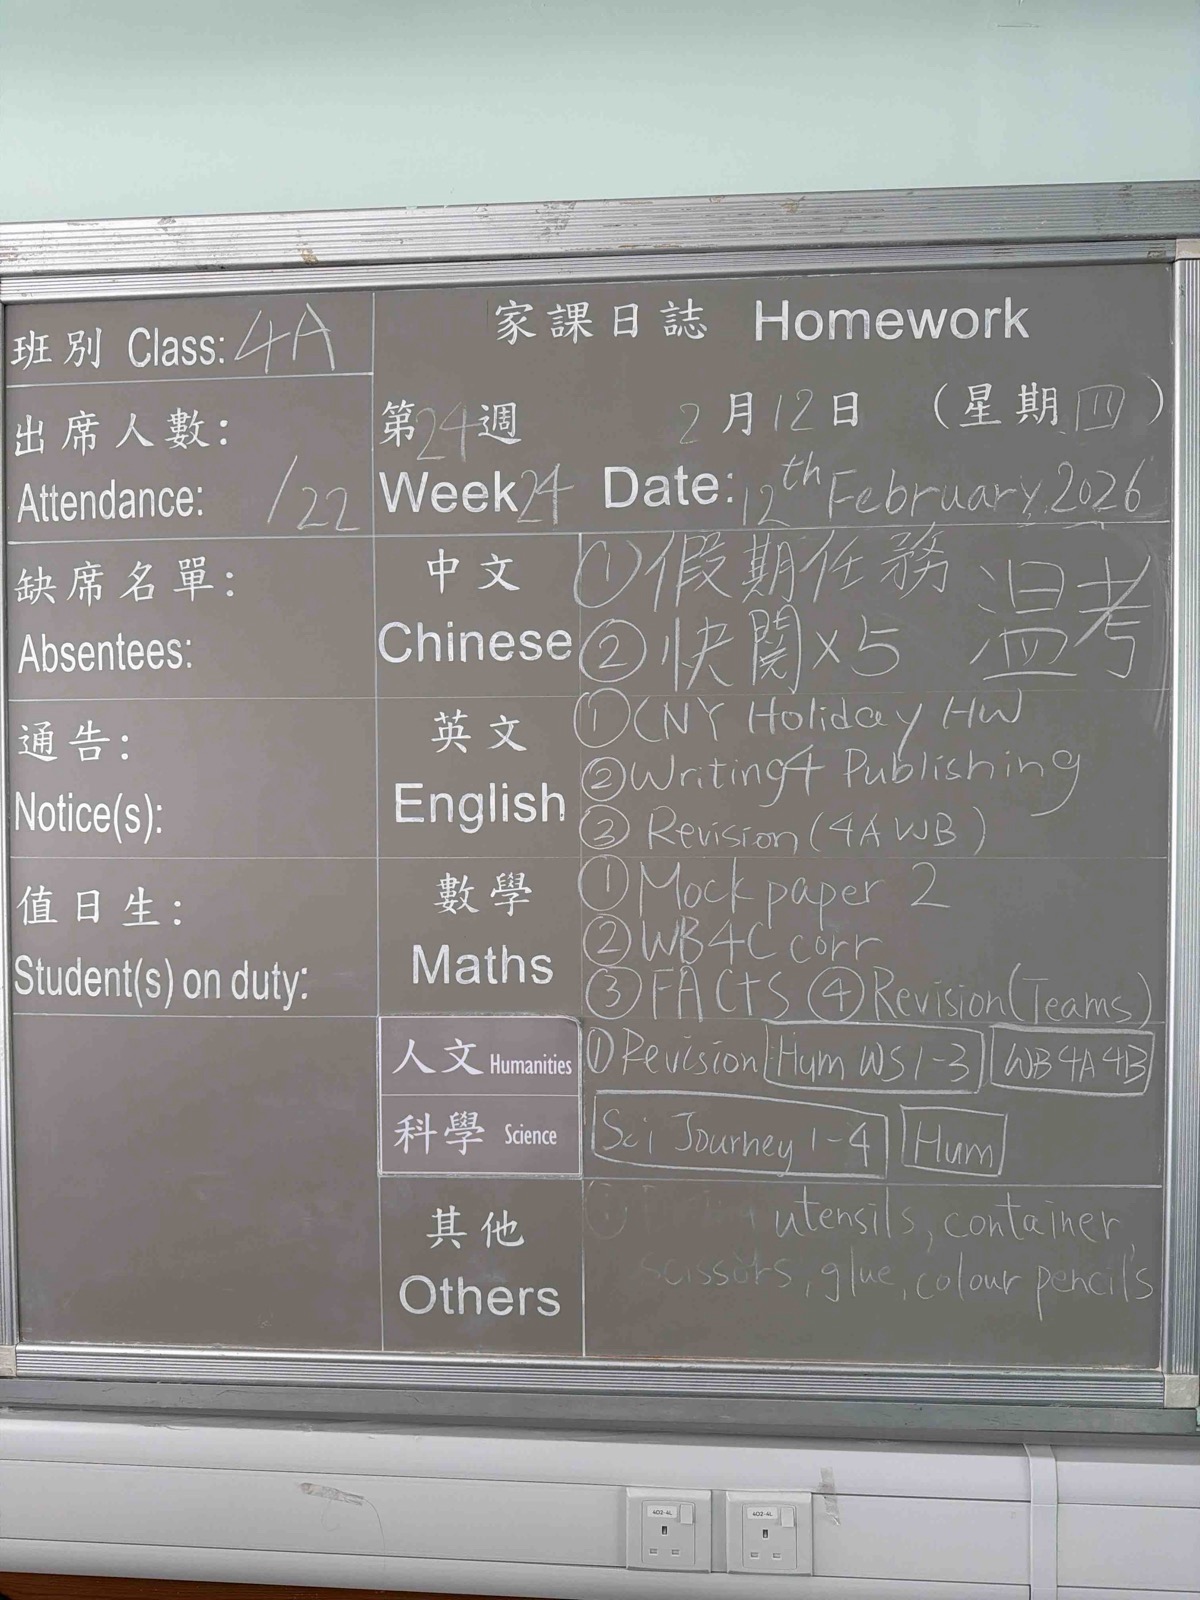 班別 Class: 4A
家課日誌 Homework
出席人數:
Attendance: /22
第24週 2月12日 (星期四)
Week 24 Date: 12th February, 2026
缺席名單:
Absentees:
中文
Chinese
① 假期任務
② 快閱×5
溫考
通告:
Notice(s):
英文
English
① CNY Holiday HW
② Writing4 Publishing
③ Revision (4A WB)
值日生:
Student(s) on duty:
數學
Maths
① Mock paper 2
② WB4C corr
③ FACTS ④ Revision (Teams)
人文 Humanities
① Revision Hum WS 1-3 WB 4A 4B
科學 Science
Sci Journey 1-4 Hum
其他
Others
utensils, container,
scissors, glue, colour pencils
402-4L
402-4L